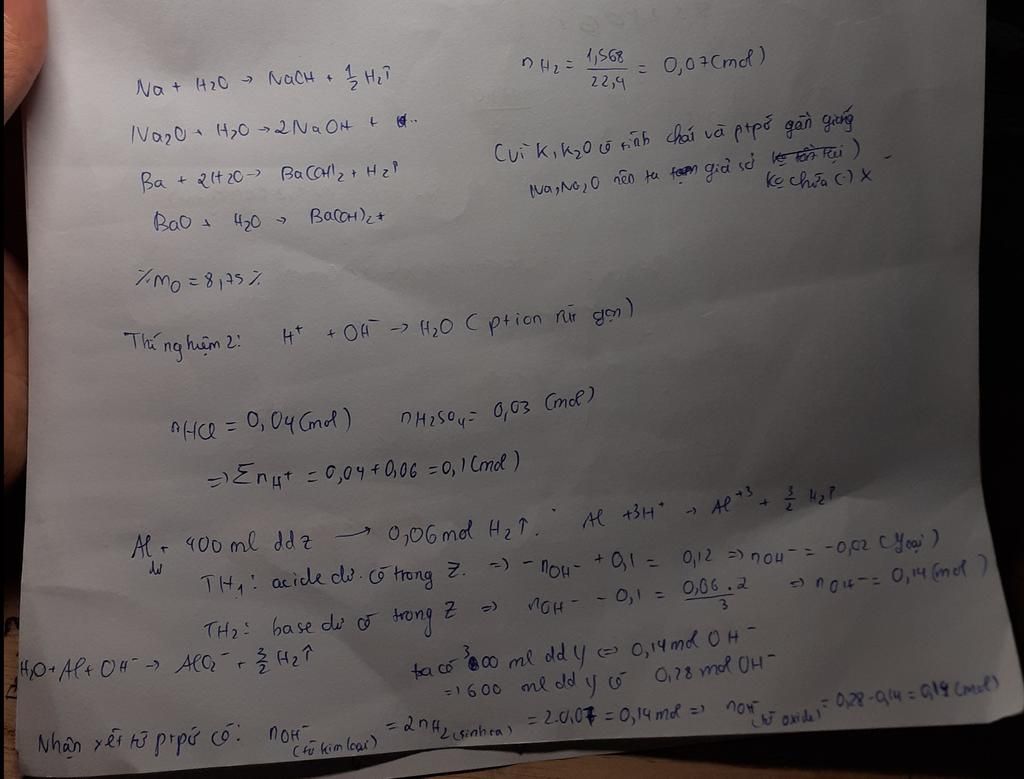 Na + H2O → NaOH + 1/2 H2↑
nH2 = 1,568/22,4 = 0,07 (mol)
Na2O + H2O → 2NaOH +
(vì K, K2O có tính chất và ptpứ gần giống
Ba + 2H2O → Ba(OH)2 + H2↑
Na, Na2O nên ta giả sử
ko chứa (-) X
BaO + H2O → Ba(OH)2 +
%mO = 8,75%
Thí nghiệm 2: H+ + OH- → H2O (pt ion rút gọn)
nHCl = 0,04 (mol) nH2SO4 = 0,03 (mol)
=> ΣnH+ = 0,04 + 0,06 = 0,1 (mol)
Al dư + 400 ml dd Z → 0,06 mol H2↑. Al + 3H+ → Al+3 + 3/2 H2↑
TH1: acide dư có trong Z. => - nOH- + 0,1 = 0,12 => nOH- = -0,02 (loại)
TH2: base dư có trong Z => nOH- - 0,1 = 0,06.2/3 => nOH- = 0,14 (mol)
H2O + Al + OH- → AlO2- + 3/2 H2↑
ta có 300 ml dd Y <=> 0,14 mol OH-
=> 600 ml dd Y có 0,28 mol OH-
Nhận xét từ ptpứ có: nOH- (từ kim loại) = 2nH2 (sinh ra) = 2.0,07 = 0,14 mol => nOH- (từ oxide) = 0,28 - 0,14 = 0,14 (mol)